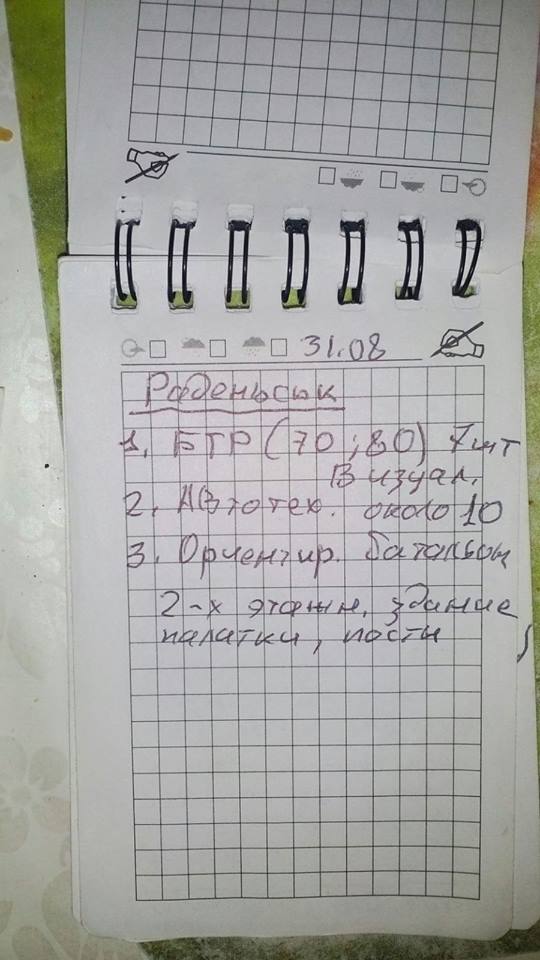 31.08
Раденьськ
1. БТР (70; 80) 7шт
Визуал.
2. Автотех. около 10
3. Ориентир. батальон
2-х этажн. здание
палатки, посты